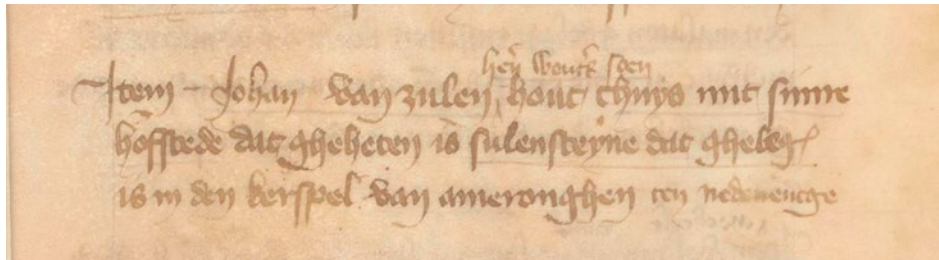 her wout soen
Item Johan van zulen hout thuys mit sinre
hofstede dat gheheten is sulensteyne dat ghelegh
is in den kerspel van ameronghen ten